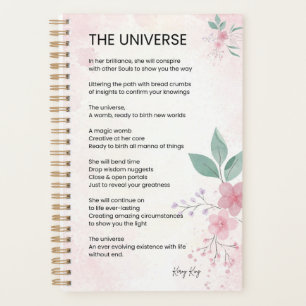 THE UNIVERSE
In her brilliance, she will conspire
with other Souls to show you the way
Littering the path with bread crumbs
of insights to confirm your knowings
The universe,
A womb, ready to birth new worlds
A magic womb
Creative at her core
Ready to birth all manna of things
She will bend time
Drop wisdom nuggets
Close & open portals
Just to reveal your greatness
She will continue on
to life ever-lasting
Creating amazing circumstances
to show you the light
The universe
An ever evolving existence with life
without end.